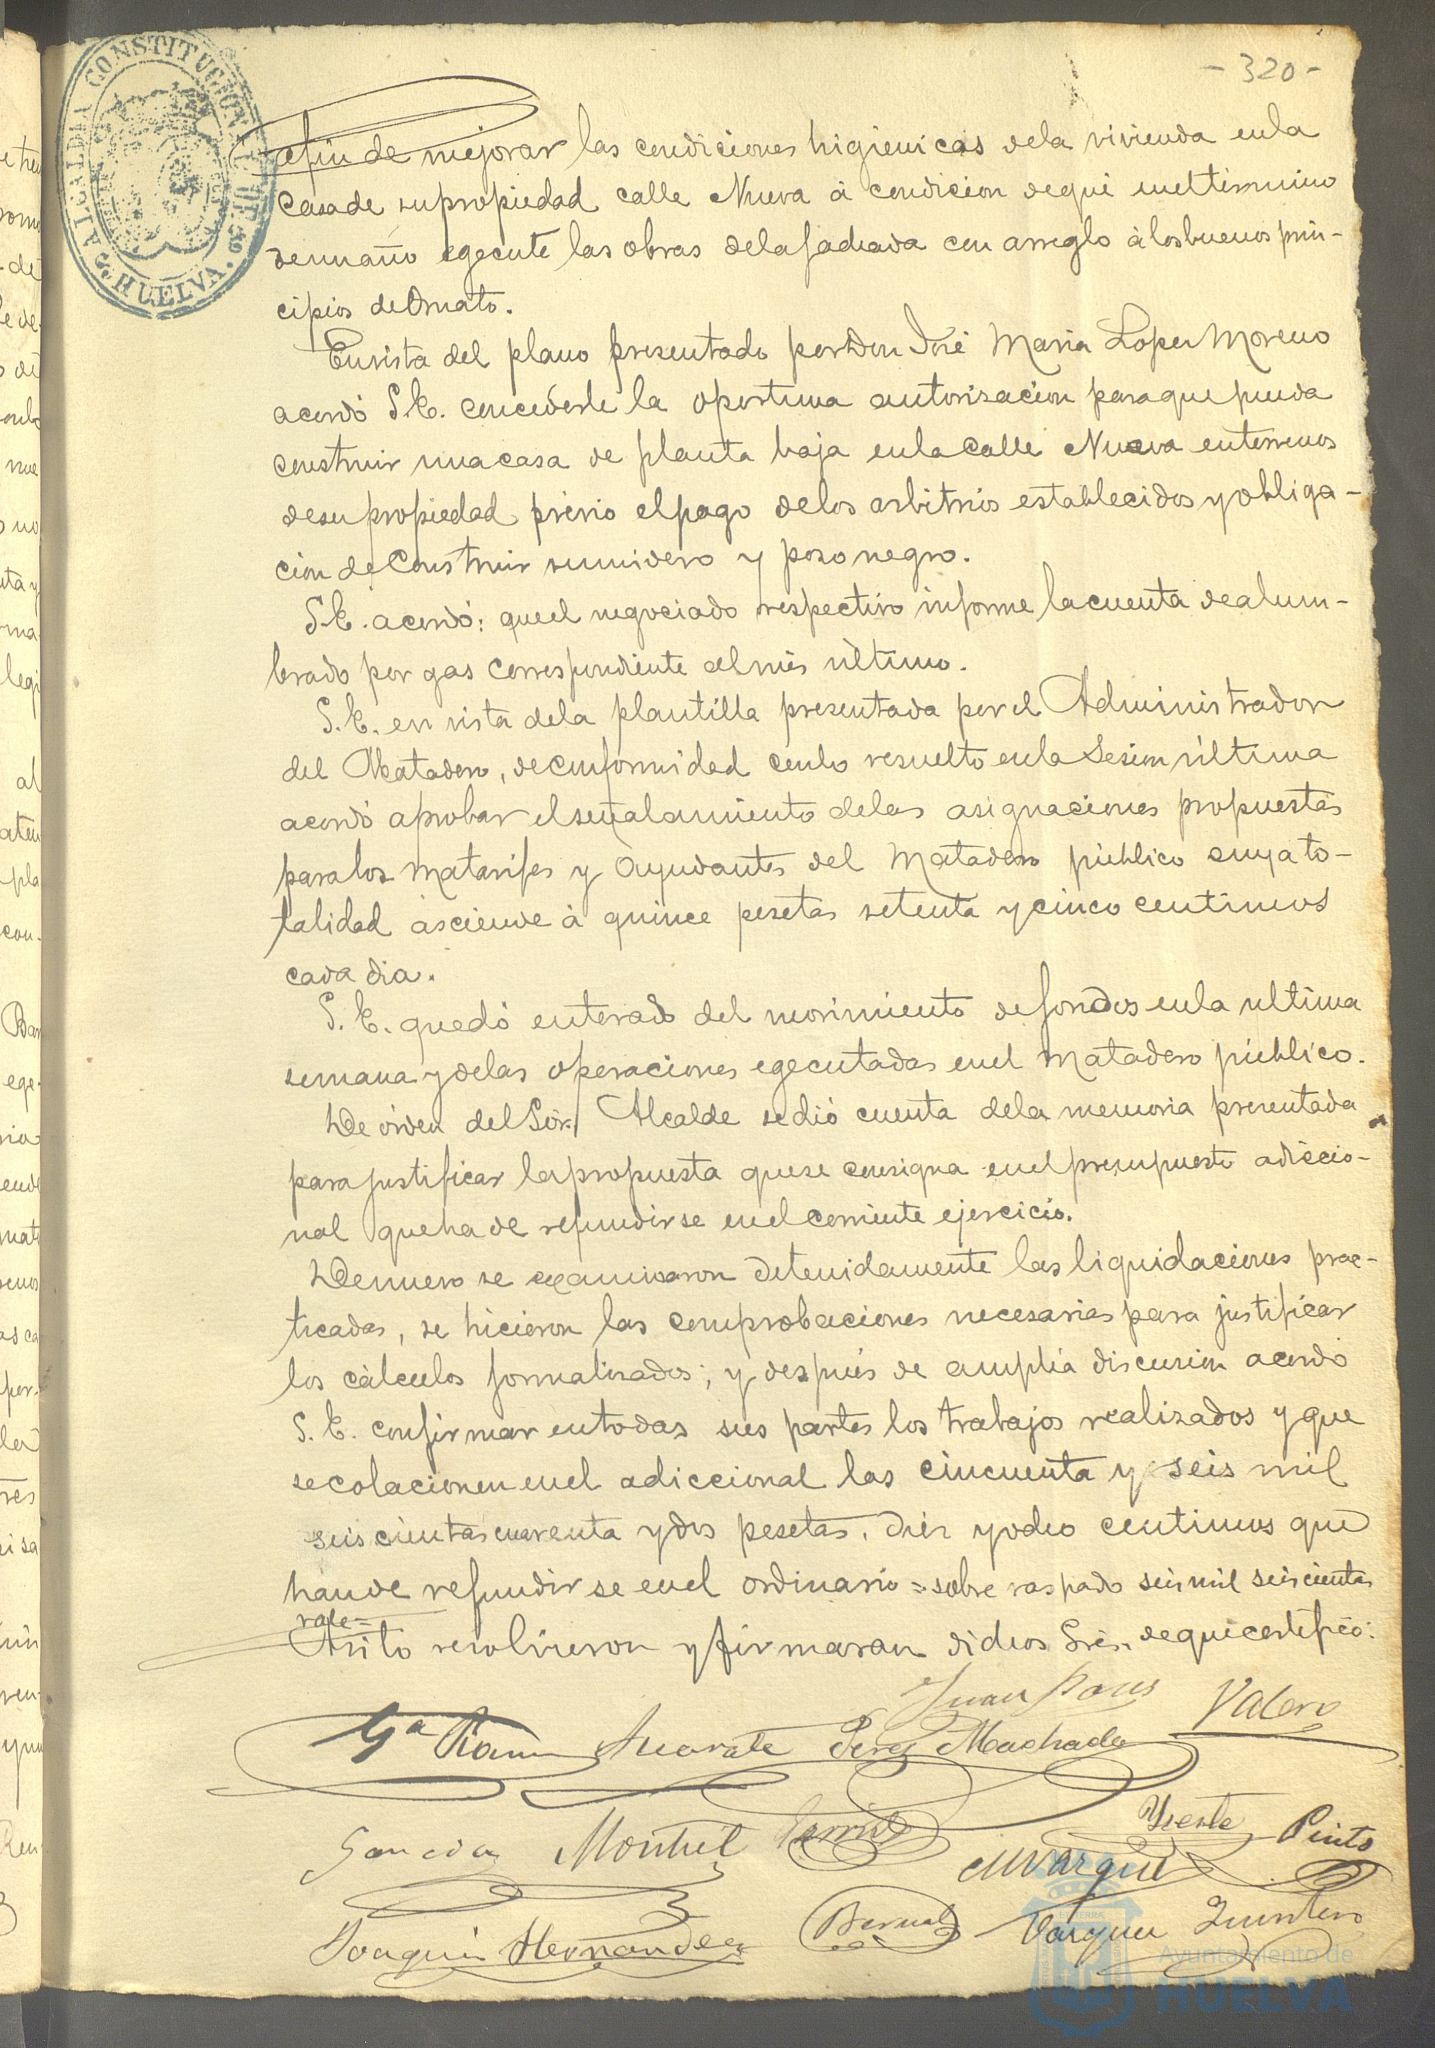 - 320 -
ALCALDIA CONSTITUCIONAL DE
HUELVA.
afin de mejorar las condiciones higienicas dela vivienda enla
casa de supropiedad calle Nueva á condicion dequé eneltérmino
deunaño egecute las obras delafachada con arreglo álosbuenos prin-
cipios deOrnato.
Envista del plano presentado porDon José Maria Lopez Moreno
acordó S.E. concederle la oportuna autorizacion paraque pueda
construir unacasa de planta baja enlacalle Nueva enterrenos
desupropiedad prévio elpago delos arbitrios establecidos yobliga-
ción deConstruir sumidero y pozo negro.
S.E. acordó: queel negociado respectivo informe lacuenta dealum-
brado por gas correspondiente al més último.
S.E. en vista dela plantilla presentada por el Administrador
del Matadero, deconformidad conlo resuelto enla Sesion última
acordó aprobar elseñalamiento delas asignaciones propuestas
paralos matarifes y ayudantes del Matadero público cuyato-
talidad asciende á quince pesetas setenta ycinco centimos
cada dia.
S.E. quedó enterado del movimiento defondos enla ultima
semana ydelas operaciones egecutadas enel Matadero público.
De órden del Sör. Alcalde sedió cuenta dela memoria presentada
parajustificar lapropuesta quese consigna enel presupuesto adiccio-
nal queha de refundirse enel corriente ejercicio.
Denuevo se examinaron detenidamente las liquidaciones prac-
ticadas, se hicieron las comprobaciones necesarias para justificar
los cálculos formalizados; y después de amplia discusion acordó
S.E. confirmar entodas sus partes los trabajos realizados y que
secolacionen enel adiccional las cincuenta y seis mil
seiscientas cuarenta ydos pesetas, diez yocho centimos que
hande refundirse enel ordinario = sobre raspado seis mil seiscientas
vale=
Asi lo resolvieron y firmaran dichos Srès. dequecertifico:
Juan Pous Valero
Gª Ramos Perez Machado
Garcia Montiel Yzeste Pinto
M Vazquez
Joaquin Hernandez Bernal Vazquez Quintero
Ayuntamiento de
HUELVA